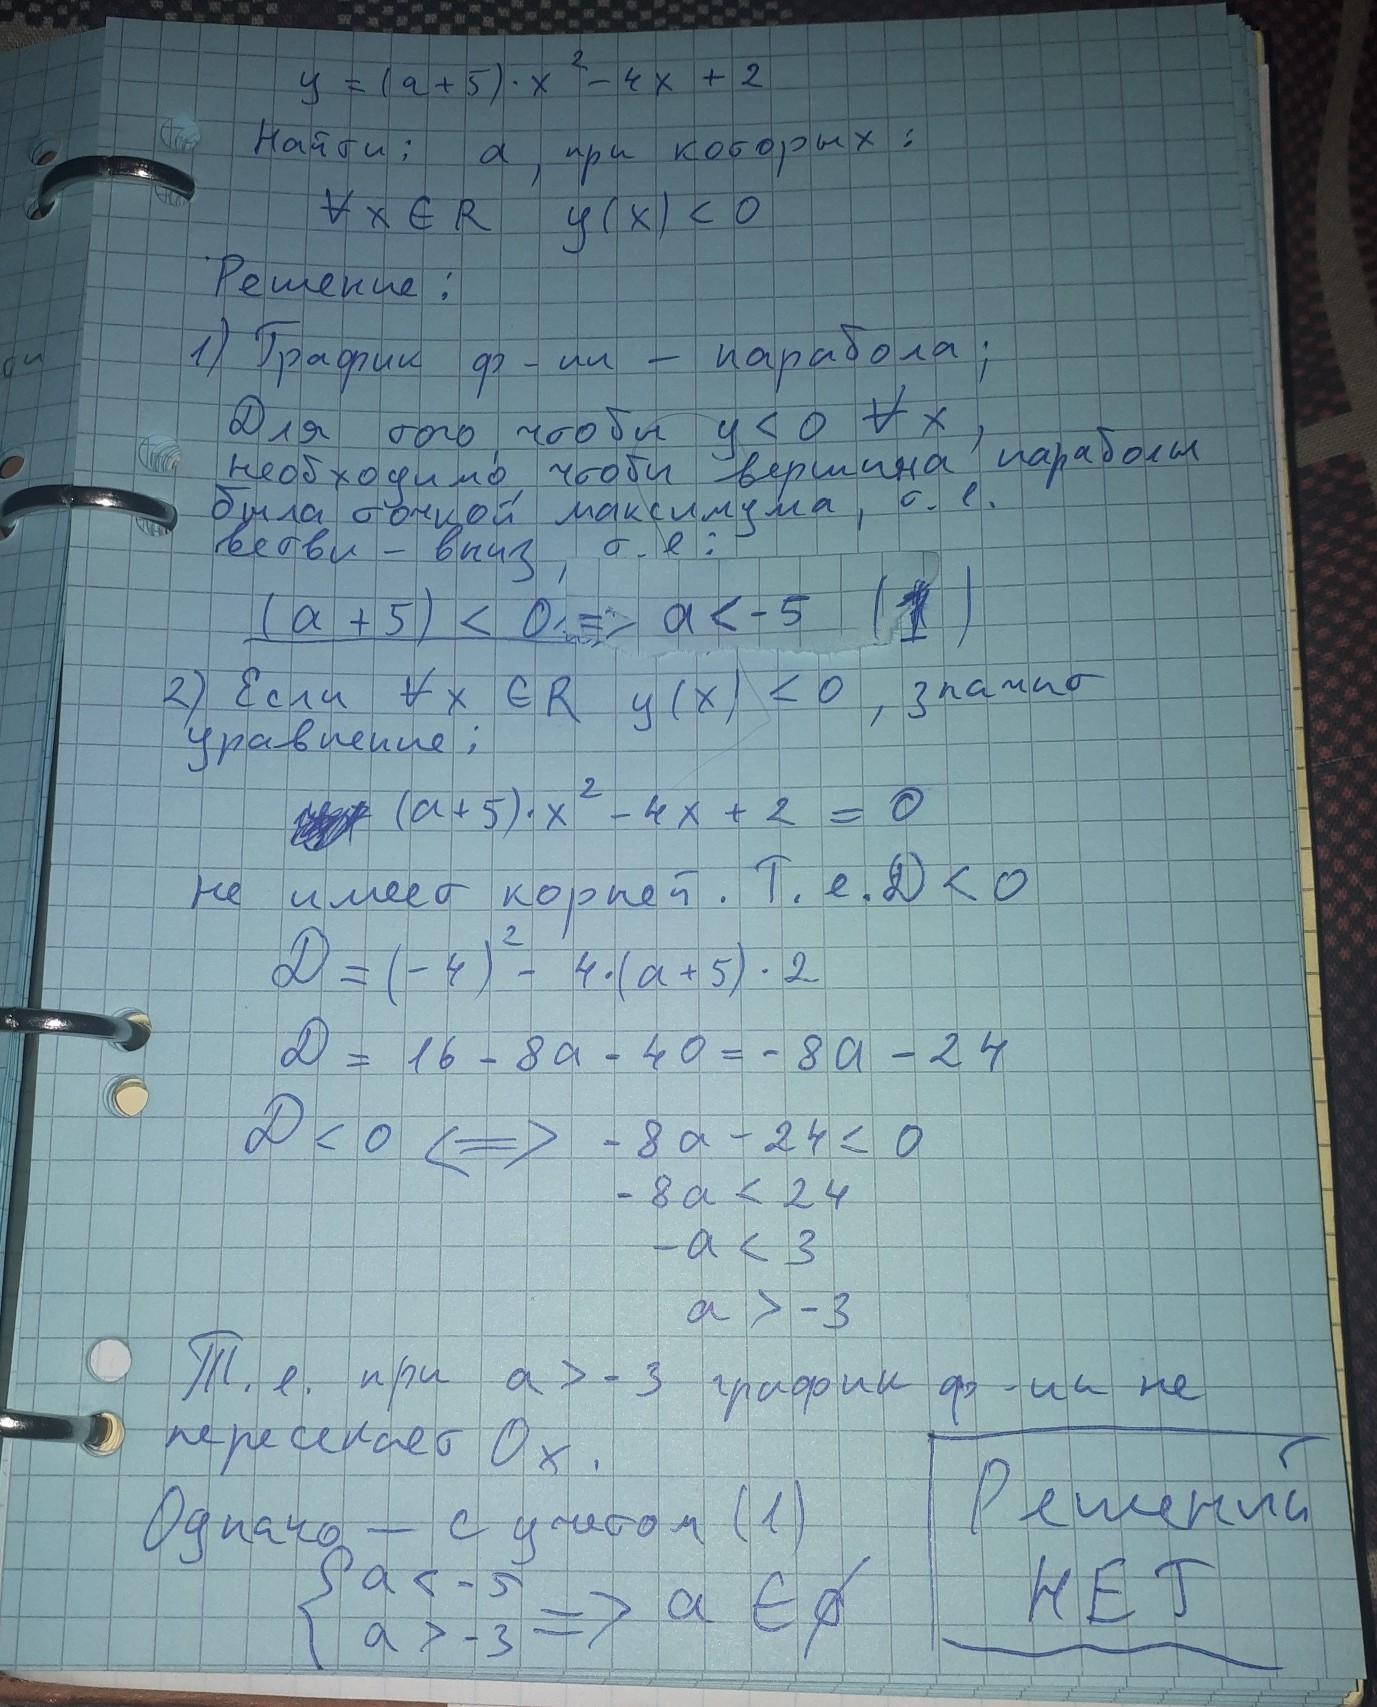 y = (a+5)·x² - 4x + 2
Найти: a, при которых:
∀x∈R y(x) < 0
Решение:
1) График ф-ии – парабола;
Для того, чтобы y<0 ∀x,
необходимо, чтобы вершина параболы
была точкой максимума, т.е.
ветви – вниз, т.е.:
(a+5) < 0 => a < -5 (1)
2) Если ∀x ∈R y(x) < 0, значит
уравнение:
(a+5)·x² - 4x + 2 = 0
не имеет корней. Т.е. D < 0
D = (-4)² - 4·(a+5)·2
D = 16 - 8a - 40 = -8a - 24
D < 0 <=> -8a - 24 < 0
-8a < 24
-a < 3
a > -3
Т.е. при a > -3 график ф-ии не
пересекает Ox.
Однако – с учетом (1)
{ a < -5
a > -3 => a ∈ ∅
Решений
НЕТ